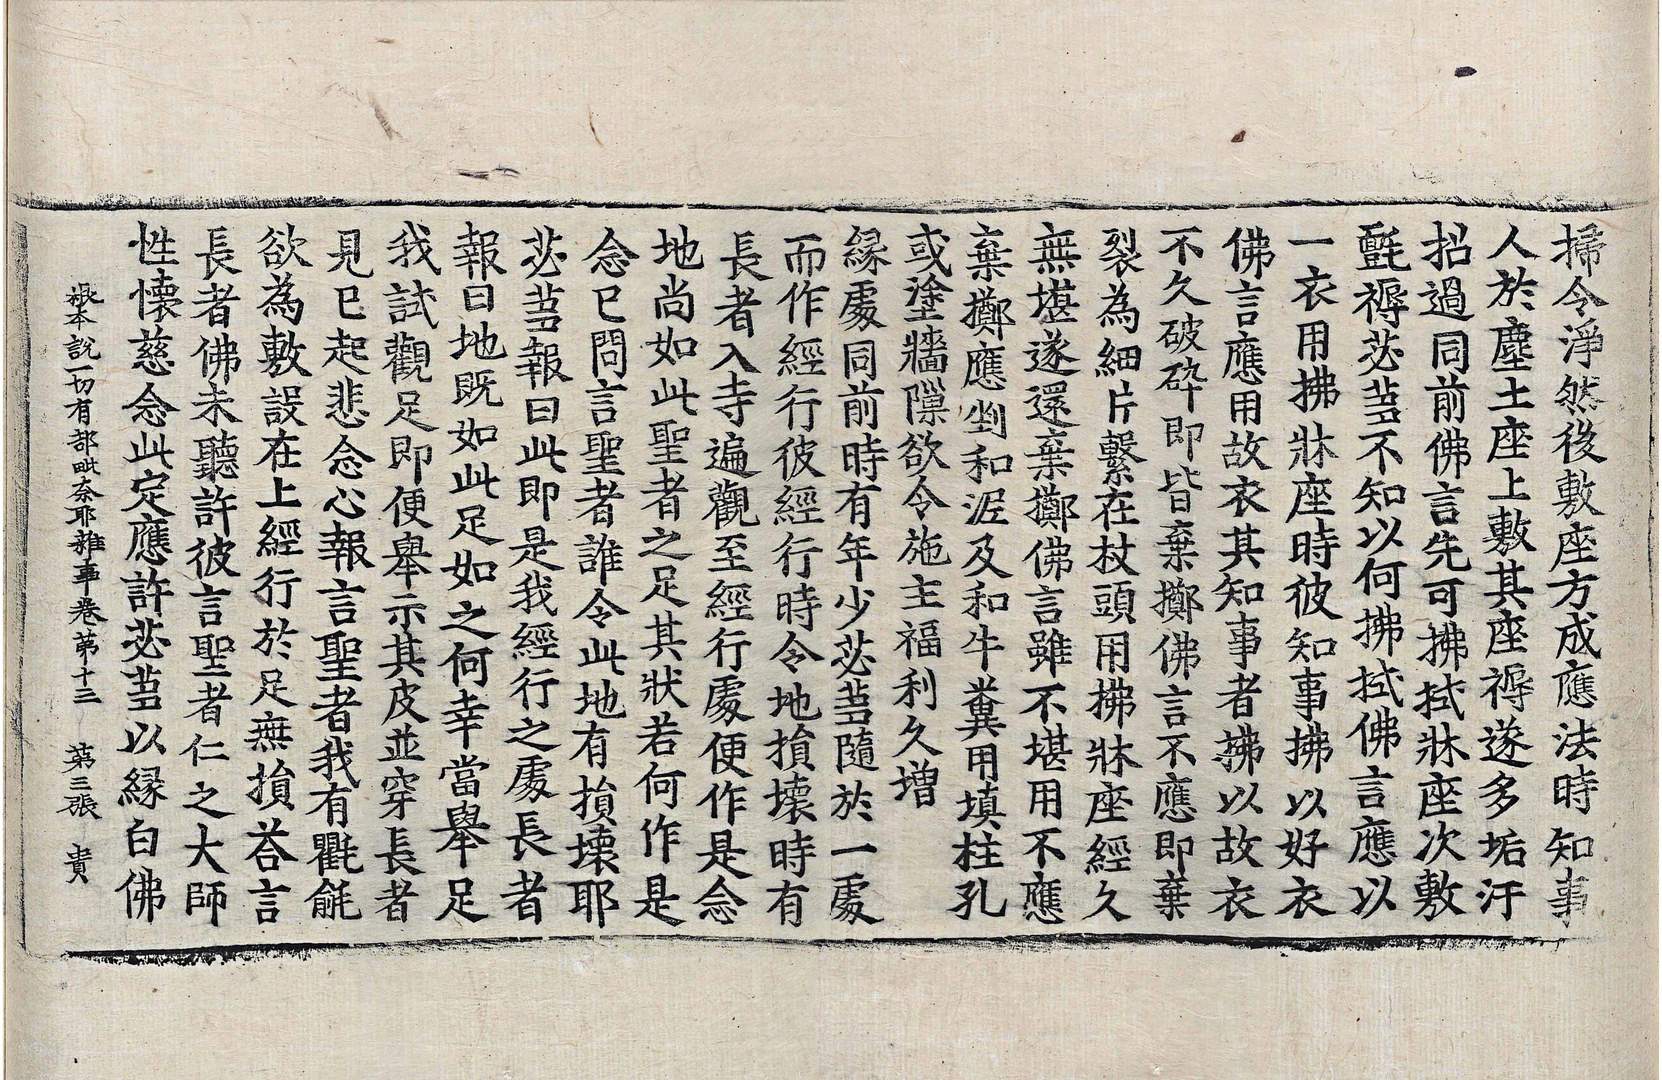 掃令淨然後敷座方成應法時知事
人於塵土座上敷其座褥遂多垢汙
招過同前佛言先可拂拭牀座次敷
氈褥苾芻不知以何拂拭佛言應以
一衣用拂牀座時彼知事拂以好衣
佛言應用故衣其知事者拂以故衣
不久破碎即皆棄擲佛言不應即棄
裂為細片繫在杖頭用拂牀座經久
無堪遂還棄擲佛言雖不堪用不應
棄擲應剉和泥及和牛糞用填柱孔
或塗牆隟欲令施主福利久增
緣處同前時有年少苾芻隨於一處
而作經行彼經行時令地損壞時有
長者入寺遍觀至經行處便作是念
地尚如此聖者之足其狀若何作是
念已問言聖者誰令此地有損壞耶
苾芻報曰此即是我經行之處長者
報曰地既如此足如之何幸當舉足
我試觀足即便舉示其皮並穿長者
見已起悲念心報言聖者我有氍毹
欲為敷設在上經行於足無損荅言
長者佛未聽許彼言聖者仁之大師
性懷慈念此定應許苾芻以緣白佛
根本說一切有部毗奈耶雜事卷第十三 第三張 貴